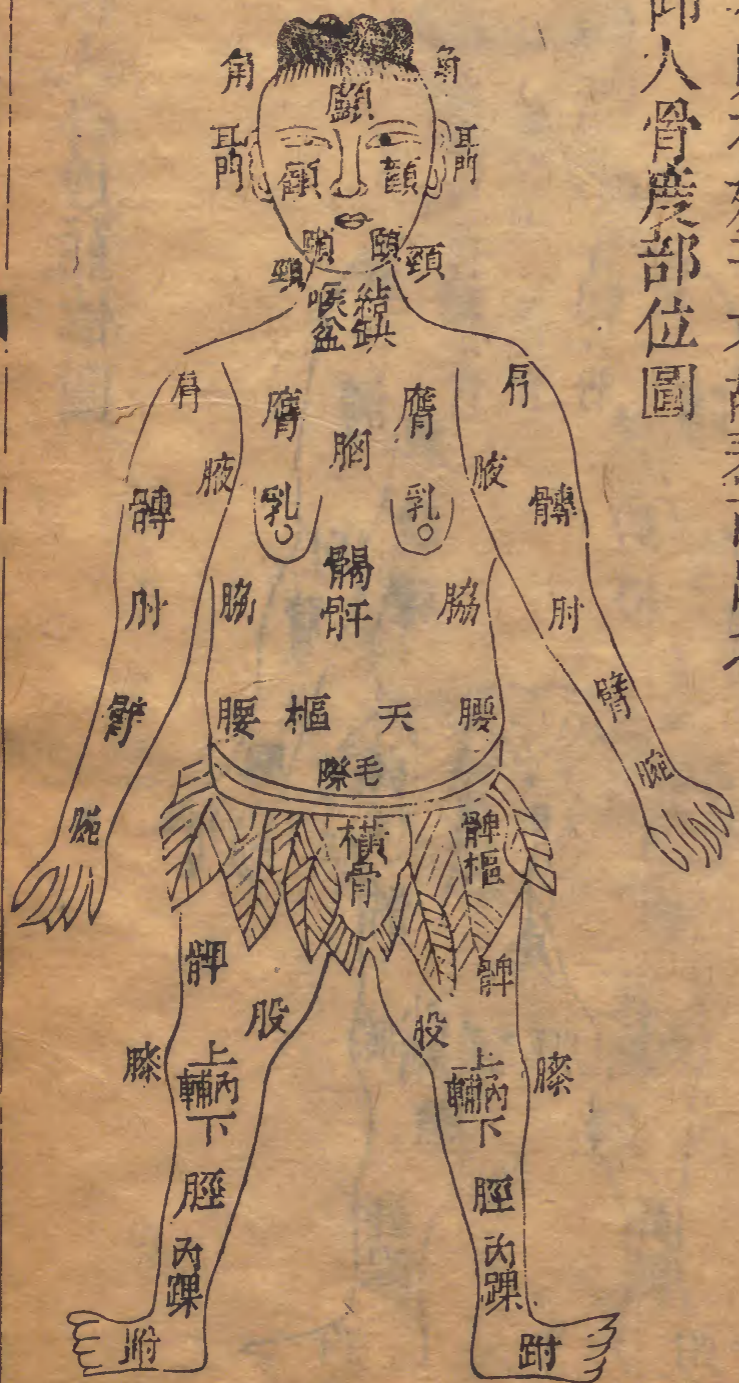 仰人骨度部位圖
角
角
顱
耳門
耳門
顏
顏
頤
頤
頸
頸
結喉
缺盆
肩
肩
膺
膺
胸
腋
腋
膊
髆
乳
乳
𩩲骬
脇
脇
肘
肘
臂
臂
腰
天樞
腰
毛際
腕
腕
橫骨
髀樞
髀
髀
股
股
膝
膝
上內輔下
上內輔下
脛
脛
內踝
內踝
跗
跗